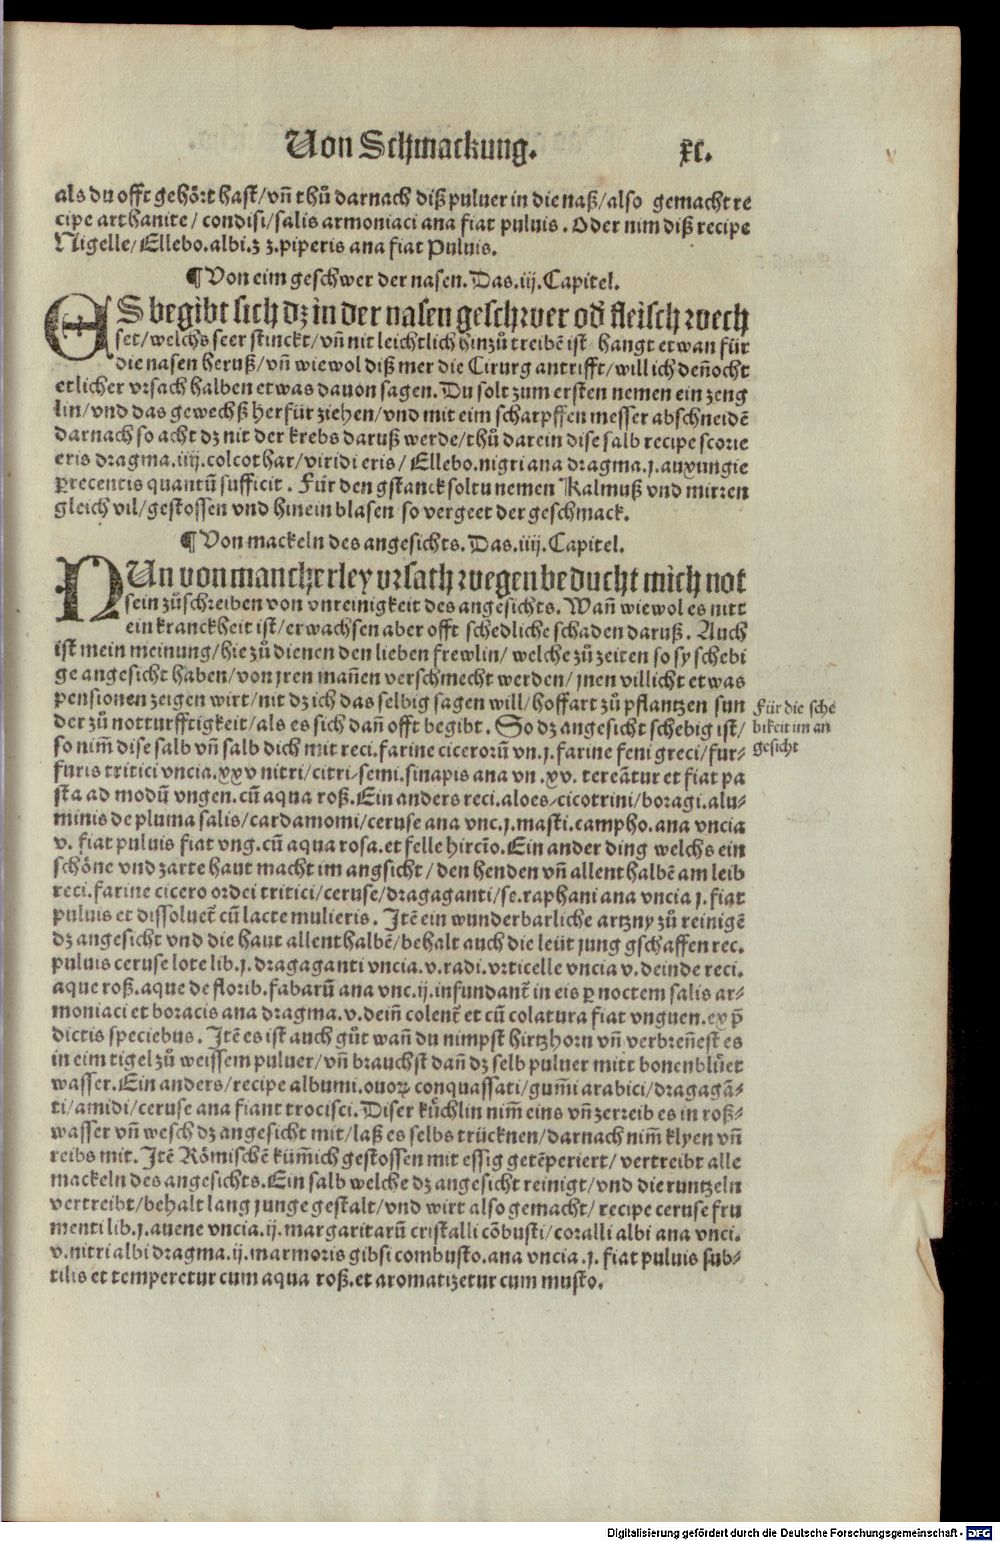 Von Schmackung. xl.
als du offt gehört hast/vñ thů darnach diß puluer in die naß/also gemacht re
cipe arthanite/condisi/salis armoniaci ana fiat puluis. Oder nim diß recipe
Nigelle/Ellebo.albi.ʒ ʒ.piperis ana fiat Puluis.
¶ Von eim geschwer der nasen. Das.iij.Capitel.
ES begibt sich dz in der nasen geschwer od̄ fleisch wech
set/welchs seer stinckt/vñ nit leichtlich hinzů treibē ist hangt etwan für
die nasen heruß/vñ wiewol diß mer die Cirurg antrifft/will ich deñocht
etlicher vrsach halben etwas dauon sagen. Du solt zum ersten nemen ein zeng
lin/vnd das gewechß herfür ziehen/vnd mit eim scharpffen messer abschneidē
darnach so acht dz nit der krebs daruß werde/thů darein dise salb recipe scorie
eris dragma.iiij.colcothar/viridi eris/Ellebo.nigri ana dragma.j.auxungie
p̄recentis quantū sufficit. Für den gstanck soltu nemen Kalmuß vnd mirren
gleich vil/gestossen vnd hinein blasen so vergeet der geschmack.
¶ Von mackeln des angesichts. Das.iiij.Capitel.
NUn von mancherley vrsach wegen beducht mich not
sein zůschreiben von vnreinigkeit des angesichts. Wañ wiewol es nitt
ein kranckheit ist/erwachsen aber offt schedliche schaden daruß. Auch
ist mein meinung/hie zů dienen den lieben frewlin/welche zů zeiten so sy schebi
ge angesicht haben/von jren mañen verschmecht werden/jnen villicht etwas
pensionen zeigen wirt/nit dz ich das selbig sagen will/hoffart zů pflantzen sun
der zů notturfftigkeit/als es sich dañ offt begibt. So dz angesicht schebig ist/
so nim̄ dise salb vñ salb dich mit reci.farine cicerorū vn.j.farine feni greci/fur⸗
furis tritici vncia.xxv nitri/citri⸗semi.sinapis ana vn.xv. tereātur et fiat pa
sta ad modū vngen.cū aqua roß.Ein anders reci.aloes⸗cicotrini/boragi.alu⸗
minis de pluma salis/cardamomi/ceruse ana vnc.j.masti.campho.ana vncia
v. fiat puluis fiat vng.cū aqua rosa.et felle hircīo.Ein ander ding welchs ein
schöne vnd zarte haut macht im angsicht/den henden vñ allenthalbē am leib
reci.farine cicero ordei tritici/ceruse/dragaganti/se.raphani ana vncia j.fiat
puluis et dissoluet̄ cū lacte mulieris. Itē ein wunderbarliche artzny zů reinigē
dz angesicht vnd die haut allenthalbē/behalt auch die leüt jung gschaffen rec.
puluis ceruse lote lib.j.dragaganti vncia.v.radi.vrticelle vncia v.deinde reci.
aque roß.aque de florib.fabarū ana vnc.ij.infundant̄ in eis p̱ noctem salis ar⸗
moniaci et boracis ana dragma.v.dein̄ colent̄ et cū colatura fiat vnguen.ex p̄
dictis speciebus. Itē es ist auch gůt wañ du nimpst hirtzhorn vñ verbreñest es
in eim tigel zů weissem puluer/vñ brauchst dañ dz selb puluer mitt bonenblůet
wasser.Ein anders/recipe albumi.ouoꝝ conquassati/gum̄i arabici/dragagā⸗
ti/amidi/ceruse ana fiant trocisci.Diser küchlin nim̄ eins vñ zerreib es in roß⸗
wasser vñ wesch dz angesicht mit/laß es selbs trücknen/darnach nim̄ klyen vñ
reibs mit. Itē Römischē küm̄ich gestossen mit essig getēperiert/vertreibt alle
mackeln des angesichts.Ein salb welche dz angesicht reinigt/vnd die runtzeln
vertreibt/behalt lang junge gestalt/vnd wirt also gemacht/recipe ceruse fru
menti lib.j.auene vncia.ij.margaritarū cristalli cōbusti/coralli albi ana vnci.
v.nitri albi dragma.ij.marmoris gibsi combusto.ana vncia.j.fiat puluis sub⸗
tilis et temperetur cum aqua roß.et aromatizetur cum musto.
Für die sche
bikeit im an
gesicht
Digitalisierung gefördert durch die Deutsche Forschungsgemeinschaft - DFG